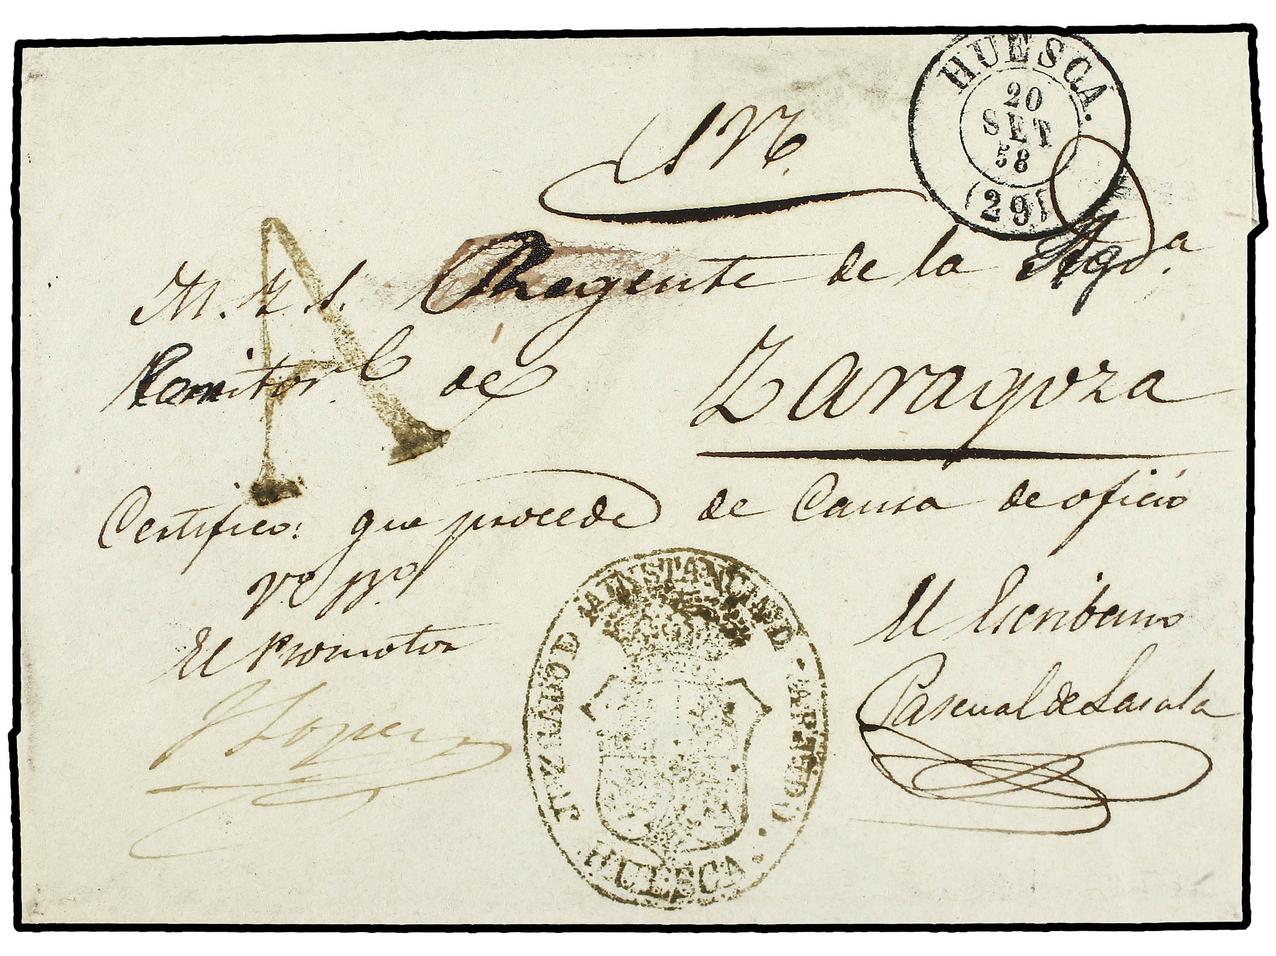 HUESCA.
20
SET
58
(29)
S N
M. Y S. Regente de la Aud.a
territor.l de Zaragoza
A
Certifico: que procede de Causa de oficio
El Promotor
El Escribano
J Lopez
Pascual de Lasala
JUZGADO DE 1A INSTANCIA D. S. PARTIDO.
HUESCA.